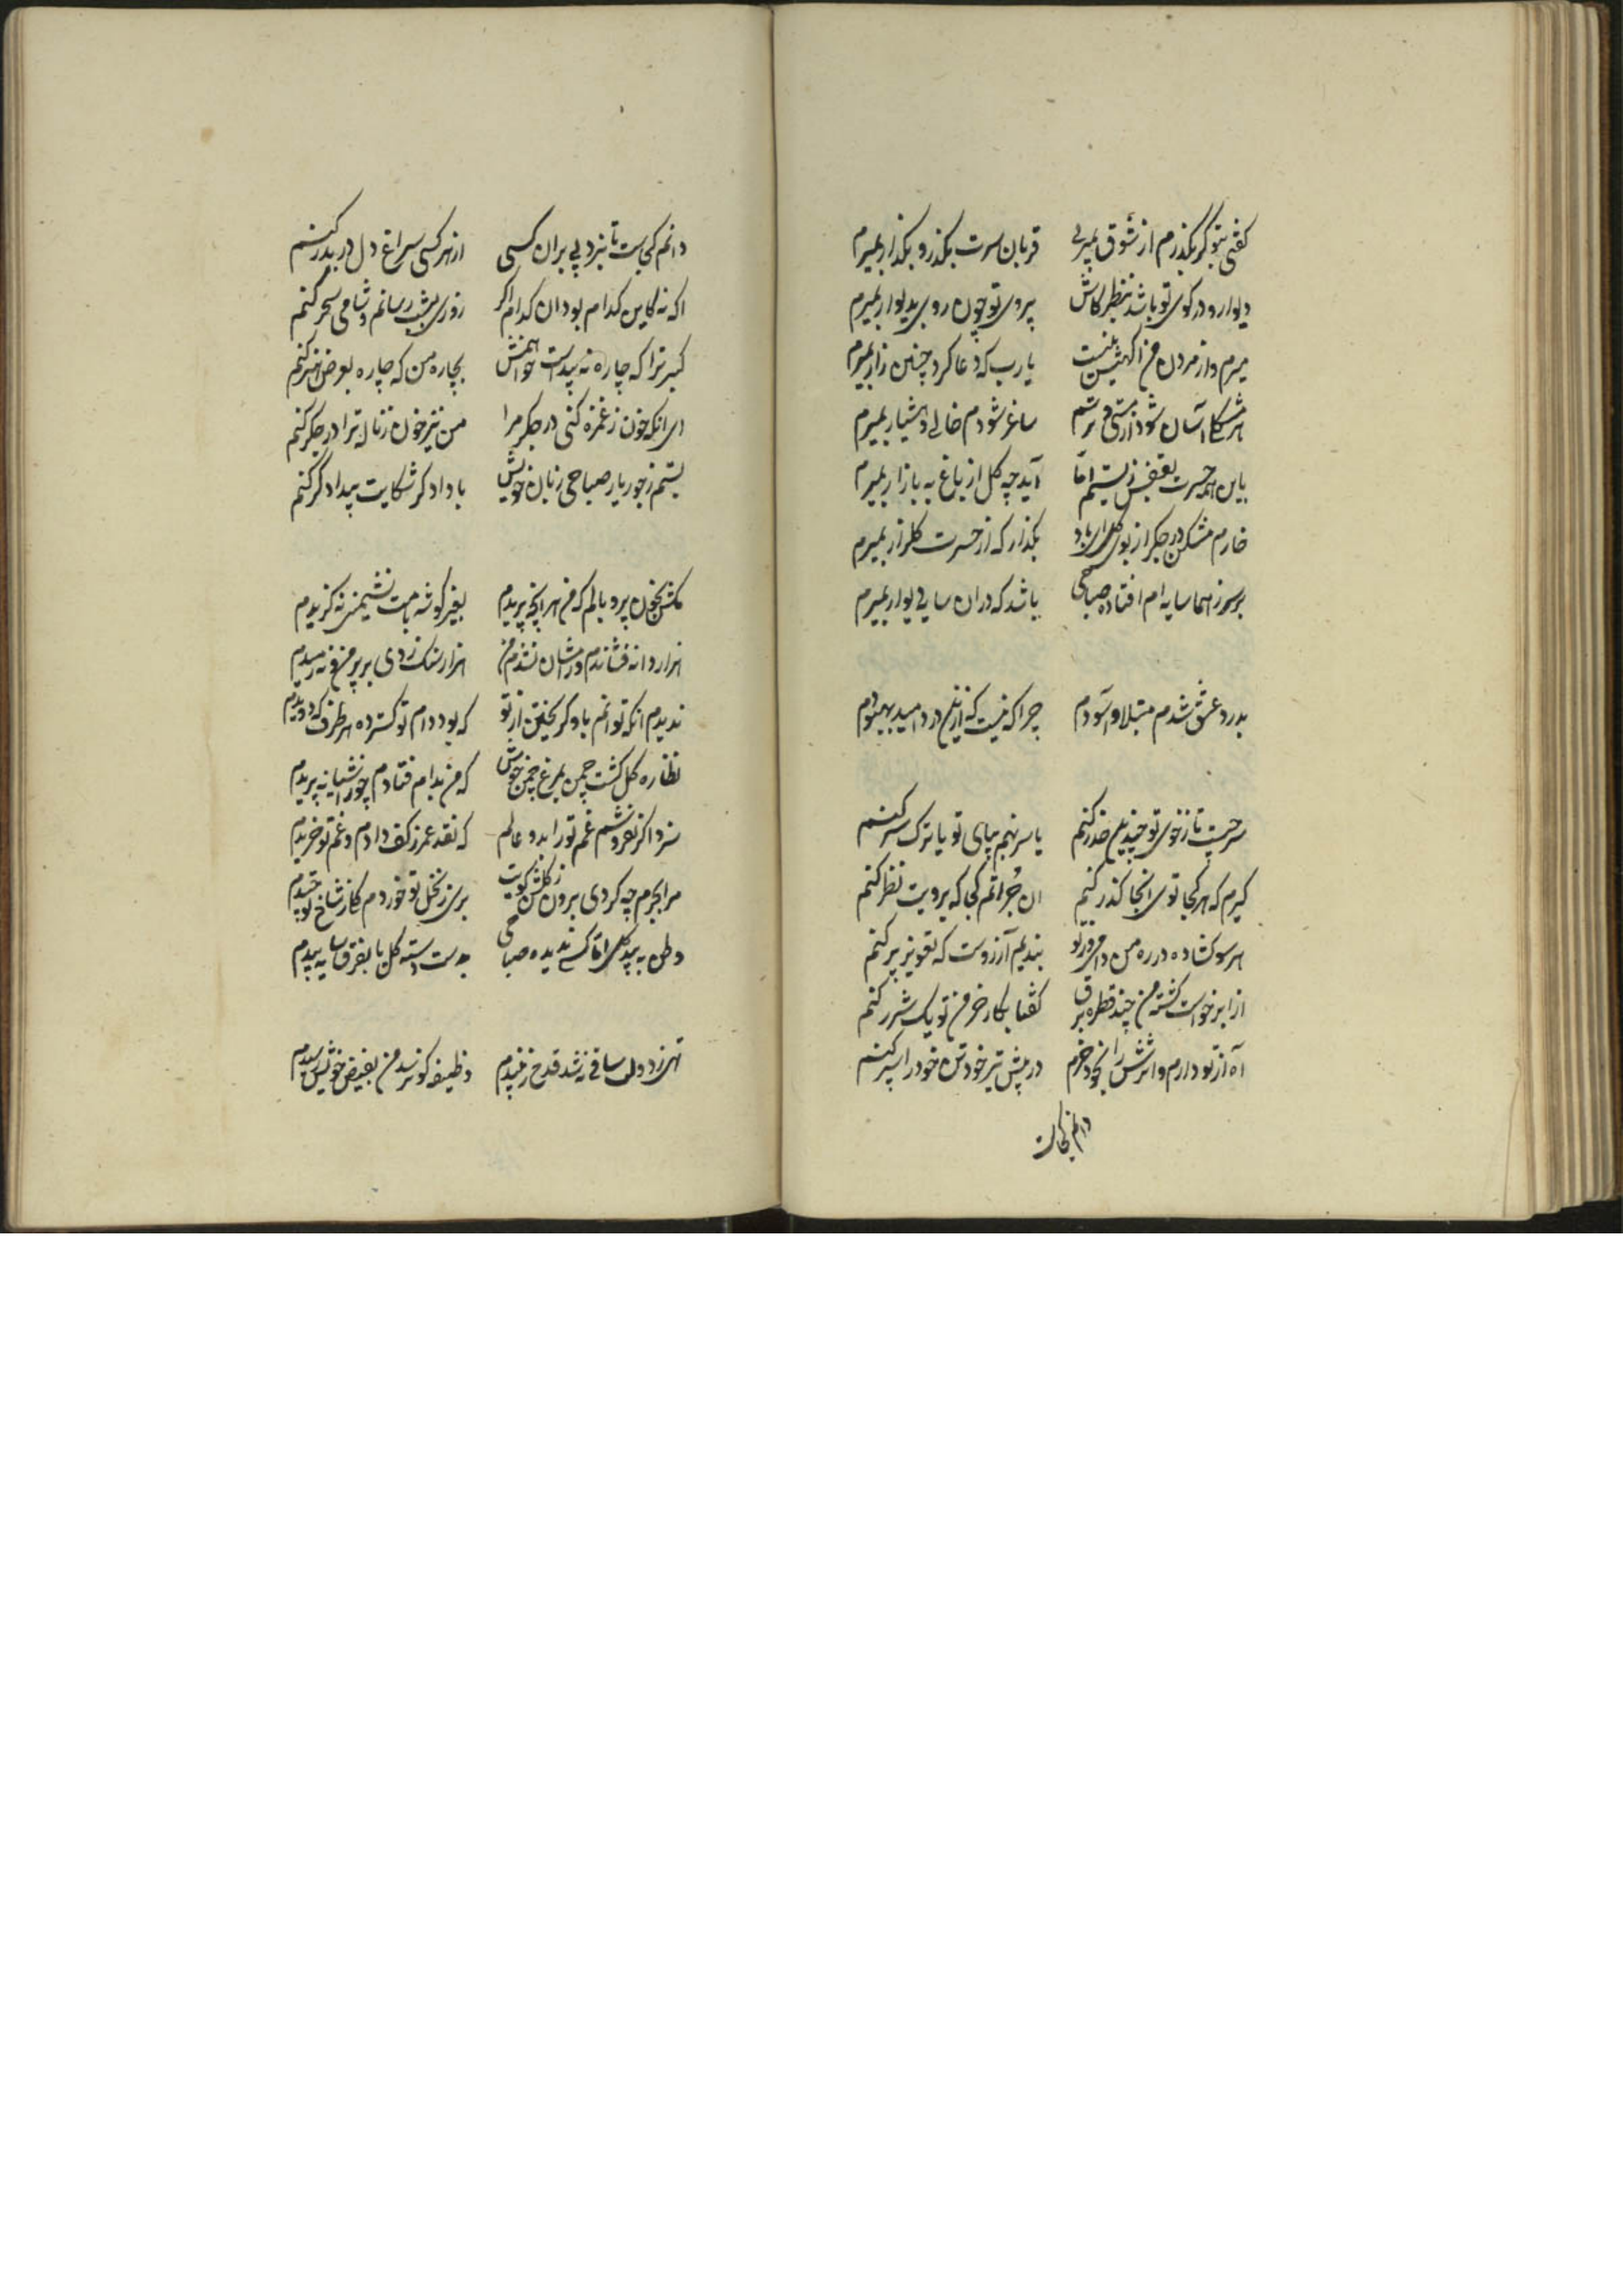 کفتی بتو کر بکذرم از شوق بمیری قربان سرت بکذر و بکذار بمیرم
دیوار و در کوی تو باشد بنظر کاش بروی تو چون روی بدیوار بمیرم
میرم و از مردن من اکهیش نیست یا رب که دعا کرد چنین زار بمیرم
هر مشکلی آسان شود از مستی و ترسم ساغر شودم خالی و هشیار بمیرم
با این همه حسرت بقفس زیستم اما آید چه کل از باغ به بازار بمیرم
خارم مشکن در جکر از بوی کل ای باد بکذار که از حسرت کلزار بمیرم
بر سر ز هما سایه ام افتاده صباحی باشد که در ان سایه دیوار بمیرم
بدرد عشق شدم مبتلا و آسودم چرا که نیست کزین درد امید بهبودم
سر چیست تا ز خوی تو چندین حذر کنم یا سر نهم بپای تو یا ترک سر کنم
کیرم که هر کجا توی انجا کذر کنم ان جراتم کجا که برویت نظر کنم
هر سو کشاده در ره من دامی و ز تو بندیم آرزوست که تعویذ پر کنم
از ابر خواست کشته من چند قطره برق کفتا بکار خرمن تو یک شرر کنم
آه از تو دارم و اثرش را بخود خرم در پیش تیر خود تن خود را سپر کنم
دانم کجاست
دانم کجاست تا نبرد پی بران کسی از هر کسی سراغ دل در بدر کنم
اکه نه کاین کدام بود ان کدام اکر روزی بشب رسانم و شامی سحر کنم
کبر ترا که چاره نه پیداست خوانمش بچاره من که چاره بعرض هنر کنم
ای انکه خون ز غمزه کنی در جکر مرا من نیز خون ز ناله ترا در جکر کنم
بستم ز جور یار صباحی زبان خویش با دادکر شکایت بیدادکر کنم
مکش بخون پر و بالم که من هر انچه پریدم بغیر کوشه بامت نشیمنی نه کزیدم
هزار دانه فشاندم و رامشان نشدم من هزار سنک زدی بر پر من و نه رمیدم
ندیدم انکه توانم بادکر یختن از تو که بود دام تو کسترده هر طرف که دویدم
نظاره کل کشت چمن بمرغ چمن خوش که من بدام فتادم چو ز اشیانه پریدم
سزد اکر نفروشم غم تو را بدو عالم که نقد عمر ز کف دادم و غم تو خریدم
مرا بجرم چه کردی برون ز کلشن کویت بری ز نخل تو خوردم کلی ز شاخ تو چیدم
وطن به بید کلی اما کسی ندیده صباحی بدست دسته کل یا بفرق سایه بیدم
تهی ز دولت ساقی نه شد قدح ز نبیدم وظیفه کو نرسد من بفیض خویش رسیدم